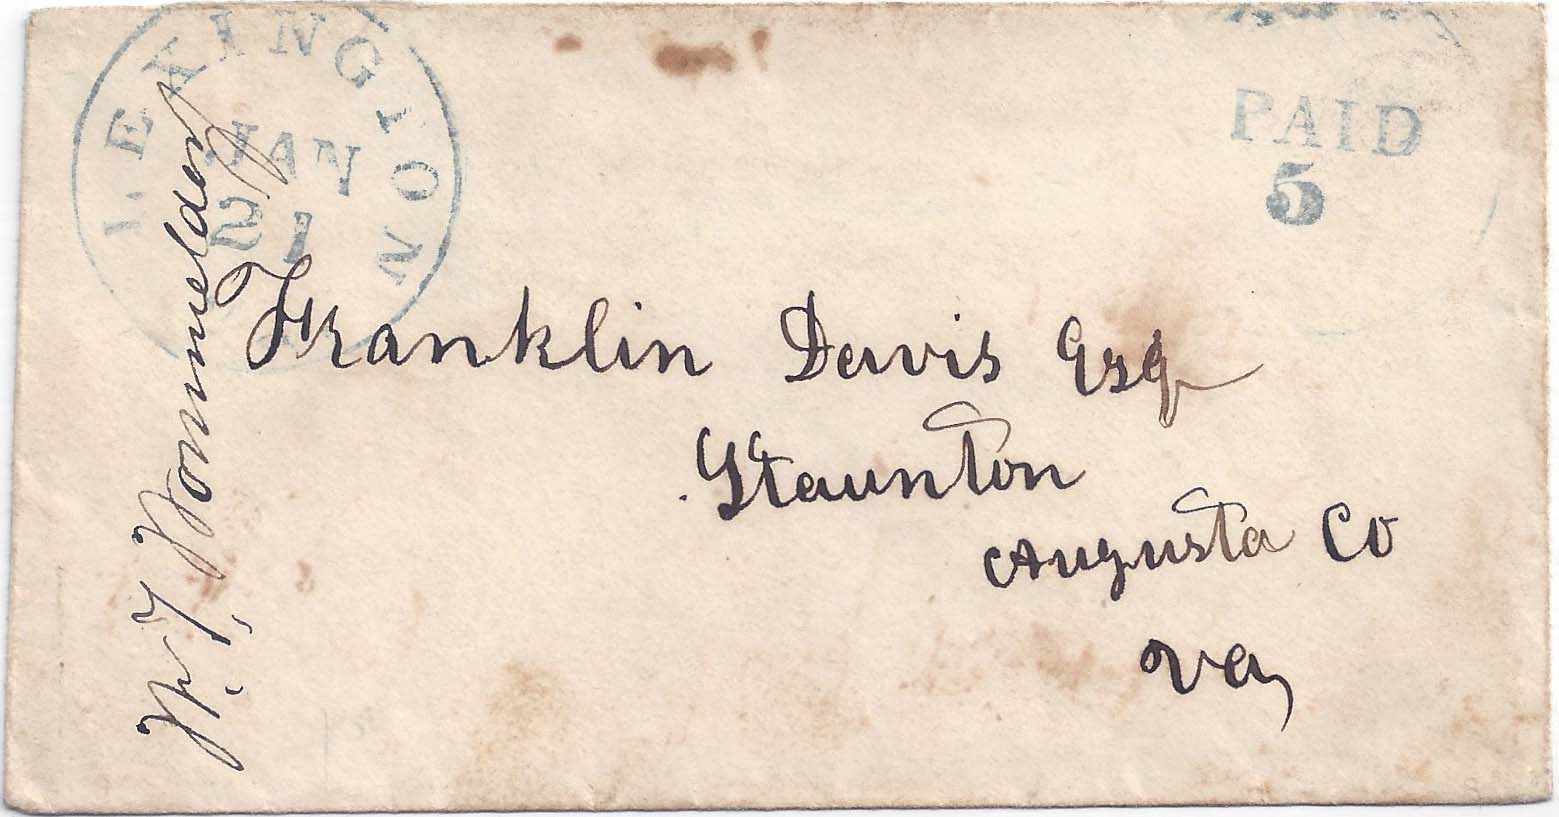 LEXINGTON
JAN
21
PAID
5
Franklin Davis Esq
Staunton
Augusta Co
Va,